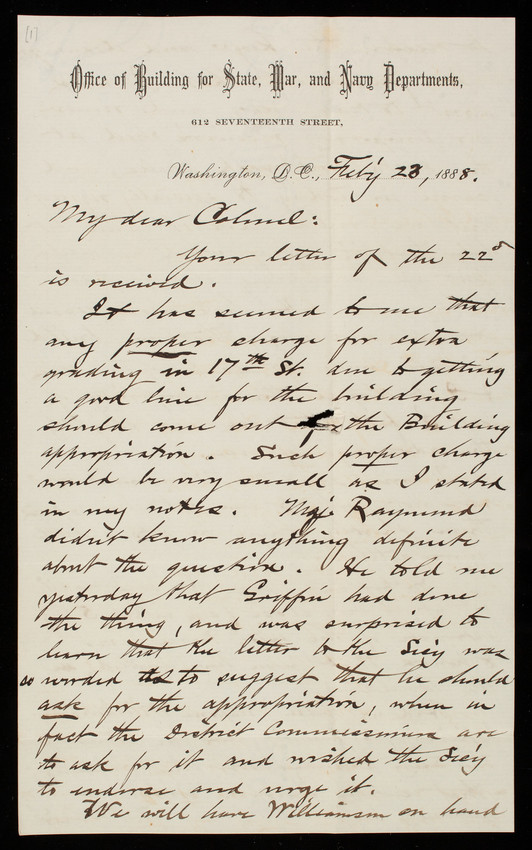 [1]
Office of Building for State, War, and Navy Departments,
612 SEVENTEENTH STREET,
Washington, D.C., Feb'y 23, 1888.
My dear Colonel:
Your letter of the 22d
is received.
It has seemed to me that
any proper charge for extra
grading in 17th St. due to getting
a good line for the building
should come out of the Building
appropriation. Such proper charge
would be very small as I stated
in my notes. Maj. Raymond
didn't know anything definite
about the question. He told me
yesterday that Griffin had done
the thing, and was surprised to
learn that the letter to the Sec'y was
so worded as to suggest that he should
ask for the appropriation, when in
fact the District Commissioners are
to ask for it and wished the Sec'y
to endorse and urge it.
We will have Williamson on hand